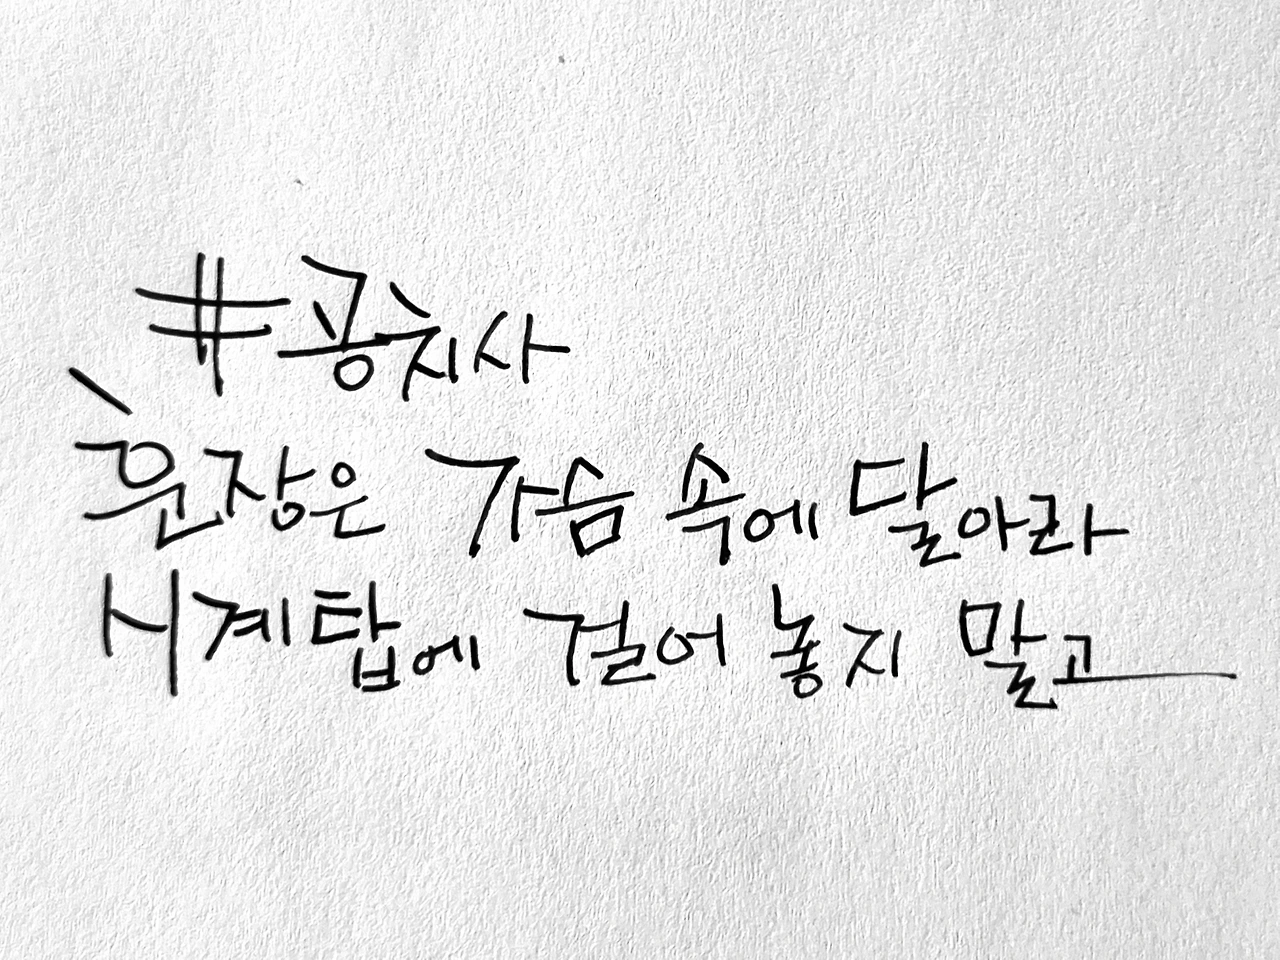 #공치사
훈장은 가슴 속에 달아라
시계탑에 걸어 놓지 말고